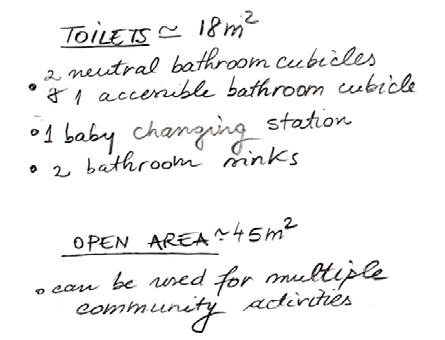 TOILETS ≃ 18m²
2 neutral bathroom cubicles
• & 1 accesible bathroom cubicle
• 1 baby changing station
• 2 bathroom sinks
OPEN AREA ≃ 45m²
• can be used for multiple
community activities